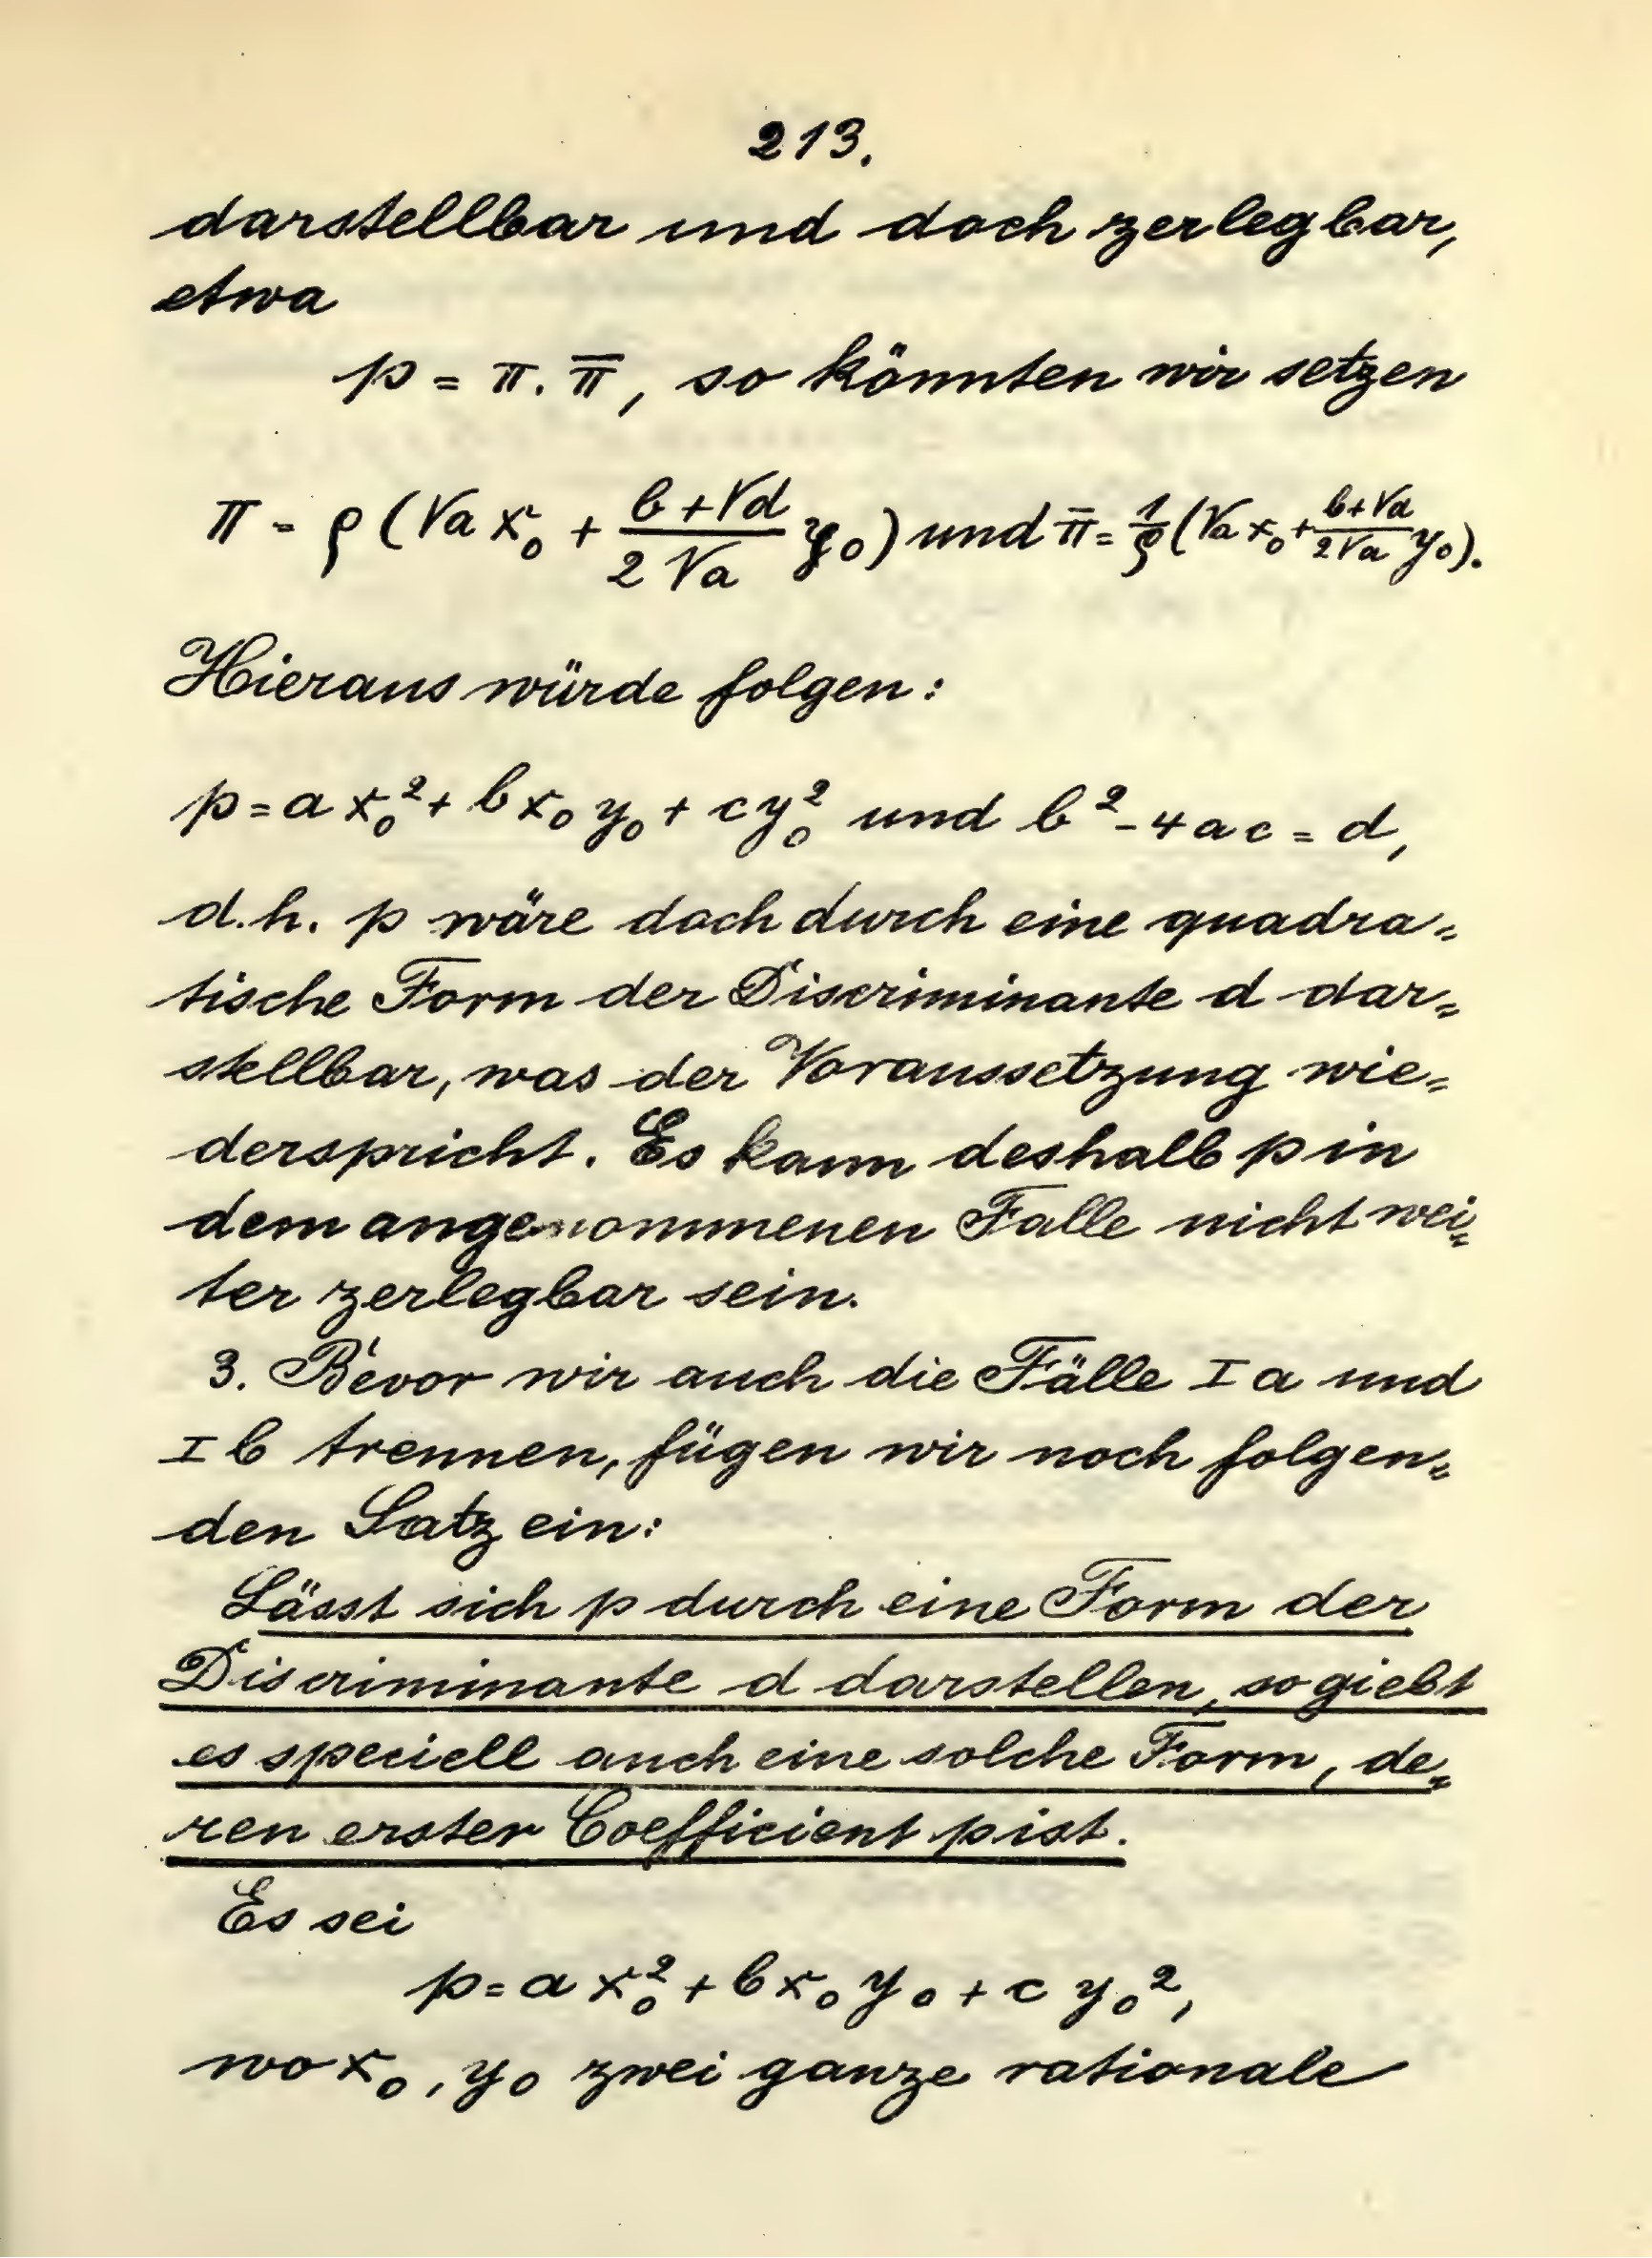 213.
darstellbar und doch zerlegbar,
etwa
p = π . π̅, so könnten wir setzen
π = ρ (√a x₀ + (b+√d)/(2√a) y₀) und π̅ = 1/ρ (√a x₀ + (b+√d)/(2√a) y₀).
Hieraus würde folgen:
p = a x₀² + b x₀ y₀ + c y₀² und b² - 4ac = d,
d.h. p wäre doch durch eine quadra=
tische Form der Discriminante d dar=
stellbar, was der Voraussetzung wie=
derspricht. Es kann deshalb p in
dem angenommenen Falle nicht wei=
ter zerlegbar sein.
3. Bevor wir auch die Fälle I a und
I b trennen, fügen wir noch folgen=
den Satz ein:
Lässt sich p durch eine Form der
Discriminante d darstellen, so giebt
es speciell auch eine solche Form, de=
ren erster Coefficient p ist.
Es sei
p = a x₀² + b x₀ y₀ + c y₀²,
wo x₀, y₀ zwei ganze rationale